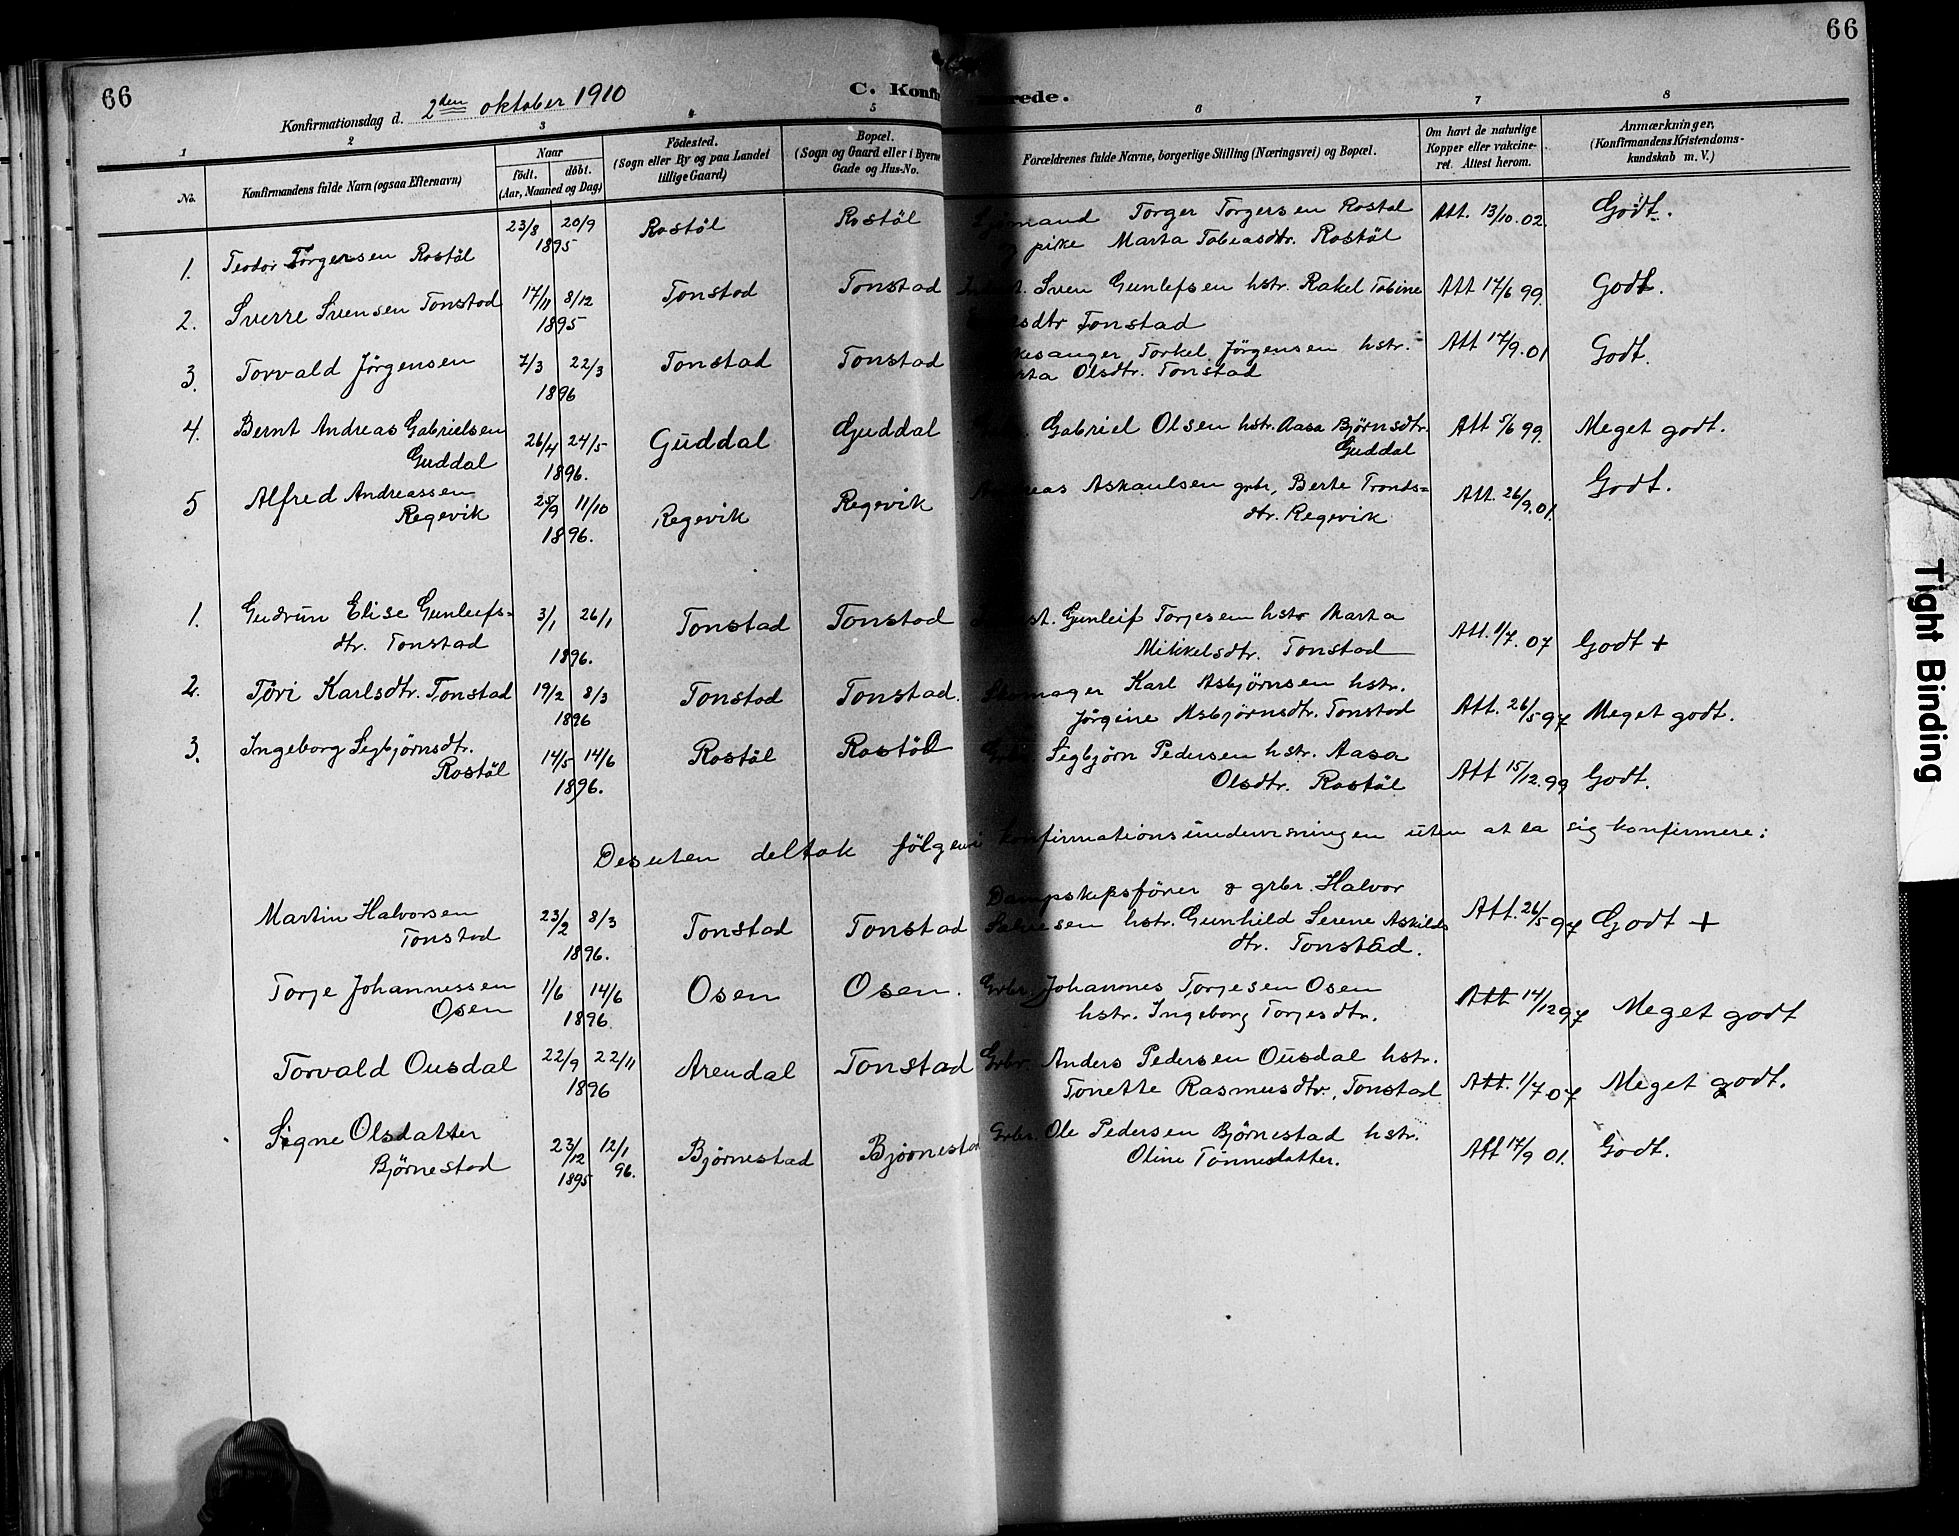 66
66
Konfirmationsdag d. 2den oktober 1910
C. Konfir rede.
1
2
3
4
5
6
7
8
No.
Konfirmandens fulde Navn (ogsaa Efternavn)
Naar
födt. döbt.
(Aar, Maaned og Dag)
Födested.
(Sogn eller By og paa Landet
tillige Gaard)
Bopæl.
(Sogn og Gaard eller i Byerne
Gade og Hus-No.
Forældrenes fulde Navne, borgerlige Stilling (Næringsvei) og Bopæl.
Om havt de naturlige
Kopper eller vakcine-
ret. Attest herom.
Anmærkninger,
(Konfirmandens Kristendoms-
kundskab m. V.)
1. Teodor Torgersen Rostöl 23/8 20/9 1895 Rostöl Rostöl Torger Torgersen Rostöl Att. 13/10.02. Godt.
pike Marta Tobeasdtr. Rostöl
2. Sverre Svensen Tonstad 17/11 8/12 1895 Tonstad Tonstad Sven Gunlefsen hstr. Rakel Tobine Att 17/6 99. Godt.
sdtr Tonstad
3. Torvald Jörgensen 7/3 22/3 1896 Tonstad Tonstad kesanger Torkel Jörgensen hstr. Att 17/9.01 Godt.
rta Olsdtr. Tonstad
4. Bernt Andreas Gabrielsen 26/4 24/5 Guddal Guddal Gabriel Olsen hstr. Aasa Björnsdtr. Att 5/6 99. Meget godt.
Guddal 1896. Guddal
5 Alfred Andreassen 25/9 11/10 Regevik Regevik Andreas Askaulsen grbr, Berte Tronds= Att. 26/9.01. Godt.
Regevik 1896. dtr. Regevik
1. Gudrun Elise Gunleefs= 3/1 26/1 Tonstad Tonstad st. Gunleif Torjesen hstr Marta Att. 1/7. 07 Godt +
dtr. Tonstad 1896. Mikkelsdtr. Tonstad
2. Töri Karlsdtr. Tonstad 19/2 8/3 Tonstad Tonstad. Skomager Karl Asbjörnsen hstr. Att. 26/5 97 Meget godt.
1896 Jörgine Asbjörnsdtr. Tonstad
3. Ingeborg Segbjörnsdtr. 14/5 14/6 Rostöl Rostöl Grbr Segbjörn Pedersen hstr. Aasa Att 15/12.99 Godt.
Rostöl 1896. Olsdtr. Rostöl
Desuten deltok fölgende konfirmationsundervisningen uten at la sig konfirmere:
Dampskipsförer & grbr. Halvor
Martin Halvorsen 23/2 8/3 Tonstad Tonstad Salvesen hstr. Gunhild Serene Askilds Att. 26/5 97 Godt +
Tonstad 1896. dtr. Tonstad.
Torje Johannessen 1/6 14/6 Osen Osen. Grbr. Johannes Torjesen Osen Att 14/12 97 Meget godt
Osen 1896. hstr. Ingeborg Torjesdtr.
Torvald Ousdal 22/9 22/11 Arendal Tonstad Grbr. Anders Pedersen Ousdal hstr. Att. 1/7 07 Meget godt.
1896 Tonette Rasmusdtr., Tonstad
Signe Olsdatter 23/12 12/1 Björnestad Björnestad Grbr. Ole Pedersen Björnestad hstr. Att 17/9 01. Godt.
Björnestad 1895 96. Oline Tönnesdatter.
Tight Binding